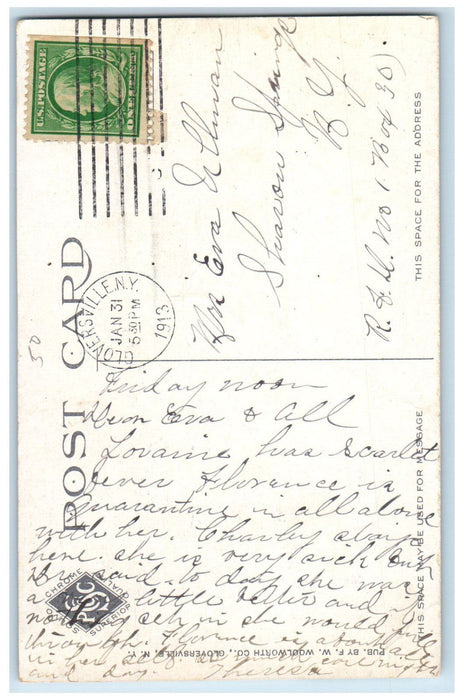 U.S. POSTAGE
ONE CENT
GLOVERSVILLE, N.Y.
JAN 31
5 30 PM
1913
Mr Eva Ullman
Sharon Springs
N. Y.
R. F. D. No 1 Box 30
THIS SPACE FOR THE ADDRESS
POST CARD
30
Friday noon
Dear Eva & All
Loraine has scarlet
fever Florence is
quarantine in all alone
with her. Charly stays
here. she is very sick
Dr said to day she was
a little better and
now he would pull
through. Florence is about all
in her self. so much care night
and day. Theresa
THIS SPACE MAY BE USED FOR MESSAGE
CHROME
QUALITY
SUPERIOR
PUB. BY F. W. WOOLWORTH CO., GLOVERSVILLE, N. Y.